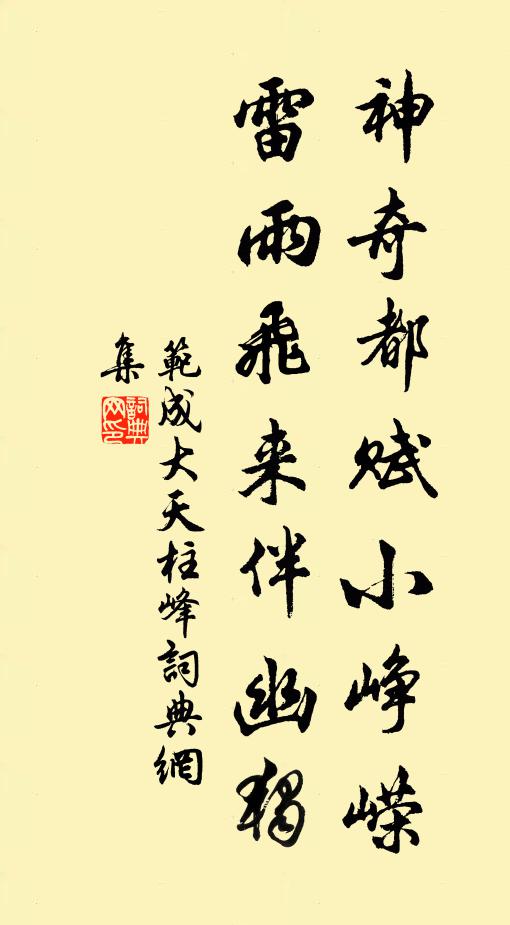 神奇都赋小峥嵘
雷雨飛来伴幽獨
範成大天柱峰詞典網
集
詞典
网印